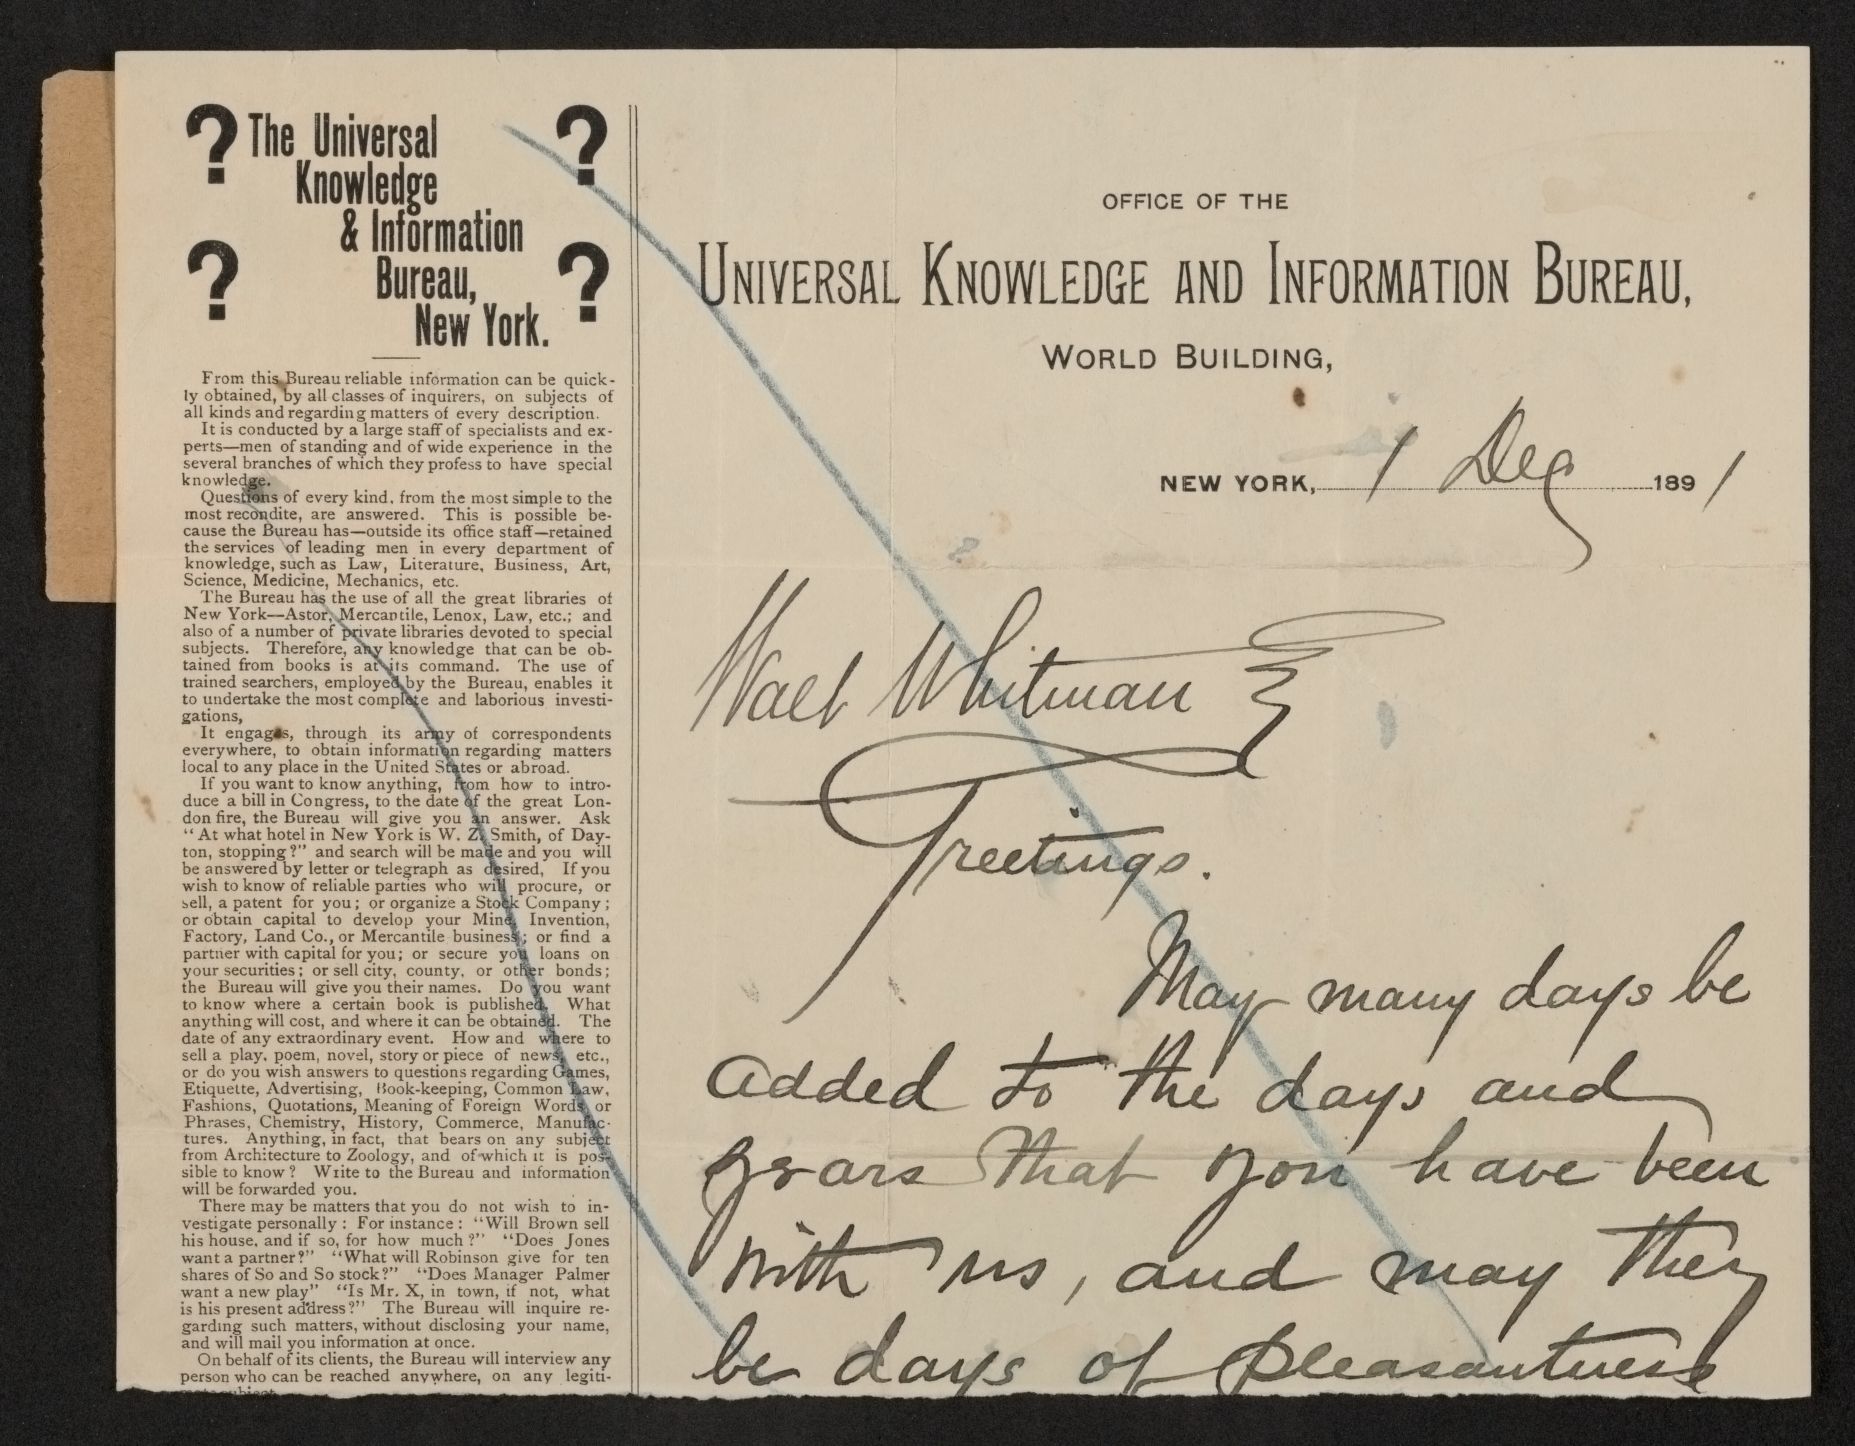 ? The Universal ?
Knowledge
& Information
? Bureau, ?
New York.
From this Bureau reliable information can be quick-
ly obtained, by all classes of inquirers, on subjects of
all kinds and regarding matters of every description.
It is conducted by a large staff of specialists and ex-
perts—men of standing and of wide experience in the
several branches of which they profess to have special
knowledge.
Questions of every kind, from the most simple to the
most recondite, are answered. This is possible be-
cause the Bureau has—outside its office staff—retained
the services of leading men in every department of
knowledge, such as Law, Literature, Business, Art,
Science, Medicine, Mechanics, etc.
The Bureau has the use of all the great libraries of
New York—Astor, Mercantile, Lenox, Law, etc.; and
also of a number of private libraries devoted to special
subjects. Therefore, any knowledge that can be ob-
tained from books is at its command. The use of
trained searchers, employed by the Bureau, enables it
to undertake the most complete and laborious investi-
gations,
It engages, through its army of correspondents
everywhere, to obtain information regarding matters
local to any place in the United States or abroad.
If you want to know anything, from how to intro-
duce a bill in Congress, to the date of the great Lon-
don fire, the Bureau will give you an answer. Ask
"At what hotel in New York is W. Z. Smith, of Day-
ton, stopping?" and search will be made and you will
be answered by letter or telegraph as desired, If you
wish to know of reliable parties who will procure, or
sell, a patent for you; or organize a Stock Company;
or obtain capital to develop your Mine, Invention,
Factory, Land Co., or Mercantile business; or find a
partner with capital for you; or secure you loans on
your securities; or sell city, county, or other bonds;
the Bureau will give you their names. Do you want
to know where a certain book is published. What
anything will cost, and where it can be obtained. The
date of any extraordinary event. How and where to
sell a play, poem, novel, story or piece of news, etc.,
or do you wish answers to questions regarding Games,
Etiquette, Advertising, Book-keeping, Common Law,
Fashions, Quotations, Meaning of Foreign Words or
Phrases, Chemistry, History, Commerce, Manufac-
tures. Anything, in fact, that bears on any subject
from Architecture to Zoology, and of which it is pos-
sible to know? Write to the Bureau and information
will be forwarded you.
There may be matters that you do not wish to in-
vestigate personally: For instance: "Will Brown sell
his house, and if so, for how much?" "Does Jones
want a partner?" "What will Robinson give for ten
shares of So and So stock?" "Does Manager Palmer
want a new play" "Is Mr. X, in town, if not, what
is his present address?" The Bureau will inquire re-
garding such matters, without disclosing your name,
and will mail you information at once.
On behalf of its clients, the Bureau will interview any
person who can be reached anywhere, on any legiti-
OFFICE OF THE
UNIVERSAL KNOWLEDGE AND INFORMATION BUREAU,
WORLD BUILDING,
NEW YORK, 1 Dec 1891
Walt Whitman
Greetings.
May many days be
added to the days and
years that you have been
with us, and may they
be days of pleasantness